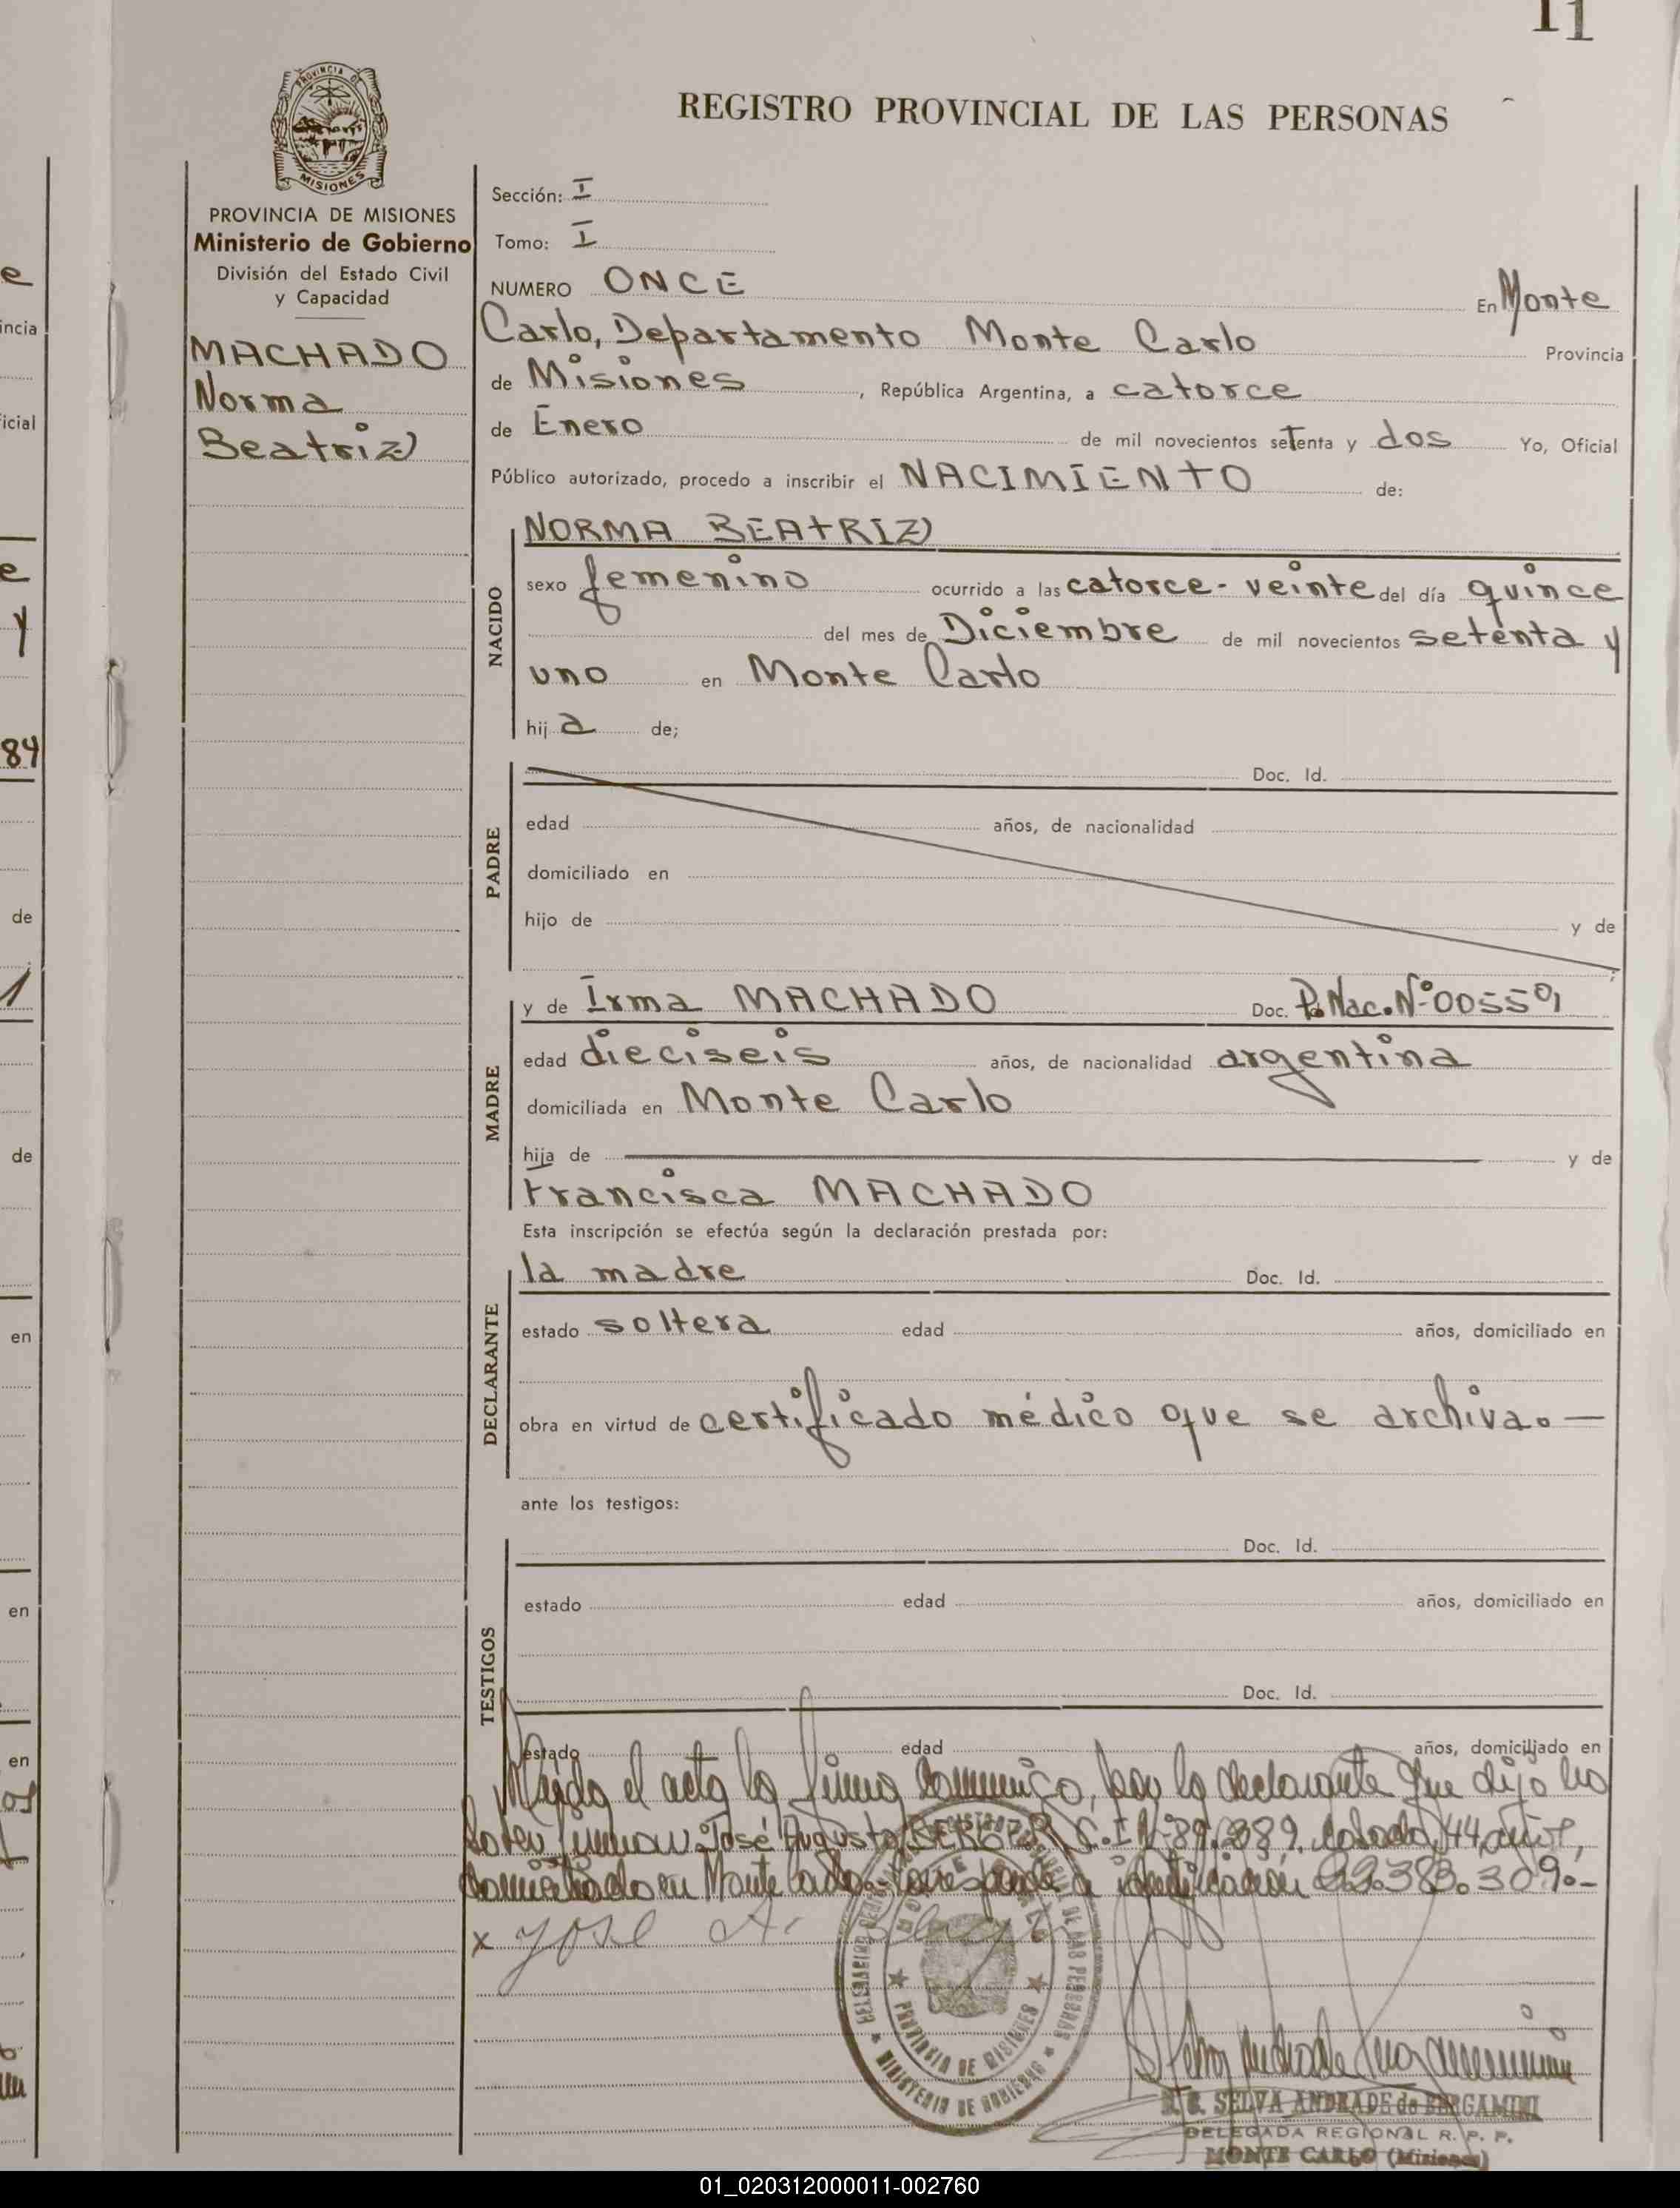 11
REGISTRO PROVINCIAL DE LAS PERSONAS
PROVINCIA DE
MISIONES
PROVINCIA DE MISIONES
Ministerio de Gobierno
División del Estado Civil
y Capacidad
MACHADO
Norma
Beatriz
Sección: I
Tomo: I
NUMERO ONCE En Monte
Carlo, Departamento Monte Carlo Provincia
de Misiones, República Argentina, a catorce
de Enero de mil novecientos setenta y dos Yo, Oficial
Público autorizado, procedo a inscribir el NACIMIENTO de:
NACIDO
NORMA BEATRIZ
sexo femenino ocurrido a las catorce - veinte del día quince
del mes de Diciembre de mil novecientos setenta y
uno en Monte Carlo
hija de;
PADRE
Doc. Id.
edad años, de nacionalidad
domiciliado en
hijo de y de
MADRE
y de Irma MACHADO Doc. P. Nac. Nº 00559
edad dieciseis años, de nacionalidad argentina
domiciliada en Monte Carlo
hija de y de
Francisca MACHADO
Esta inscripción se efectúa según la declaración prestada por:
DECLARANTE
la madre Doc. Id.
estado soltera edad años, domiciliado en
obra en virtud de certificado médico que se archiva. —
ante los testigos:
TESTIGOS
Doc. Id.
estado edad años, domiciliado en
Doc. Id.
estado edad años, domiciliado en
el acta la firma conmigo, por la declarante que dijo no
saber firmar: José Augusto C.I. Nº 89.389, casado, 44 años,
domiciliado en Monte Carlo. corresponde a identificación 22.383.309.-
x José A.
REGISTRO DE LAS PERSONAS
PROVINCIA DE MISIONES
MINISTERIO DE GOBIERNO
SELVA ANDRADE de BERGAMINI
DELEGADA REGIONAL R. P. P.
MONTE CARLO (Misiones)
e
incia
icial
e
y
84
de
1
de
en
en
en
01_020312000011-002760